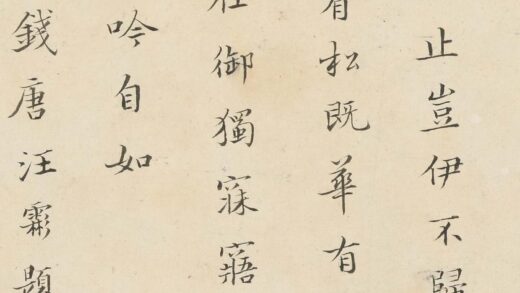 止豈伊不歸
有松既華有
在御獨寐寤
吟自如
錢唐汪霦題